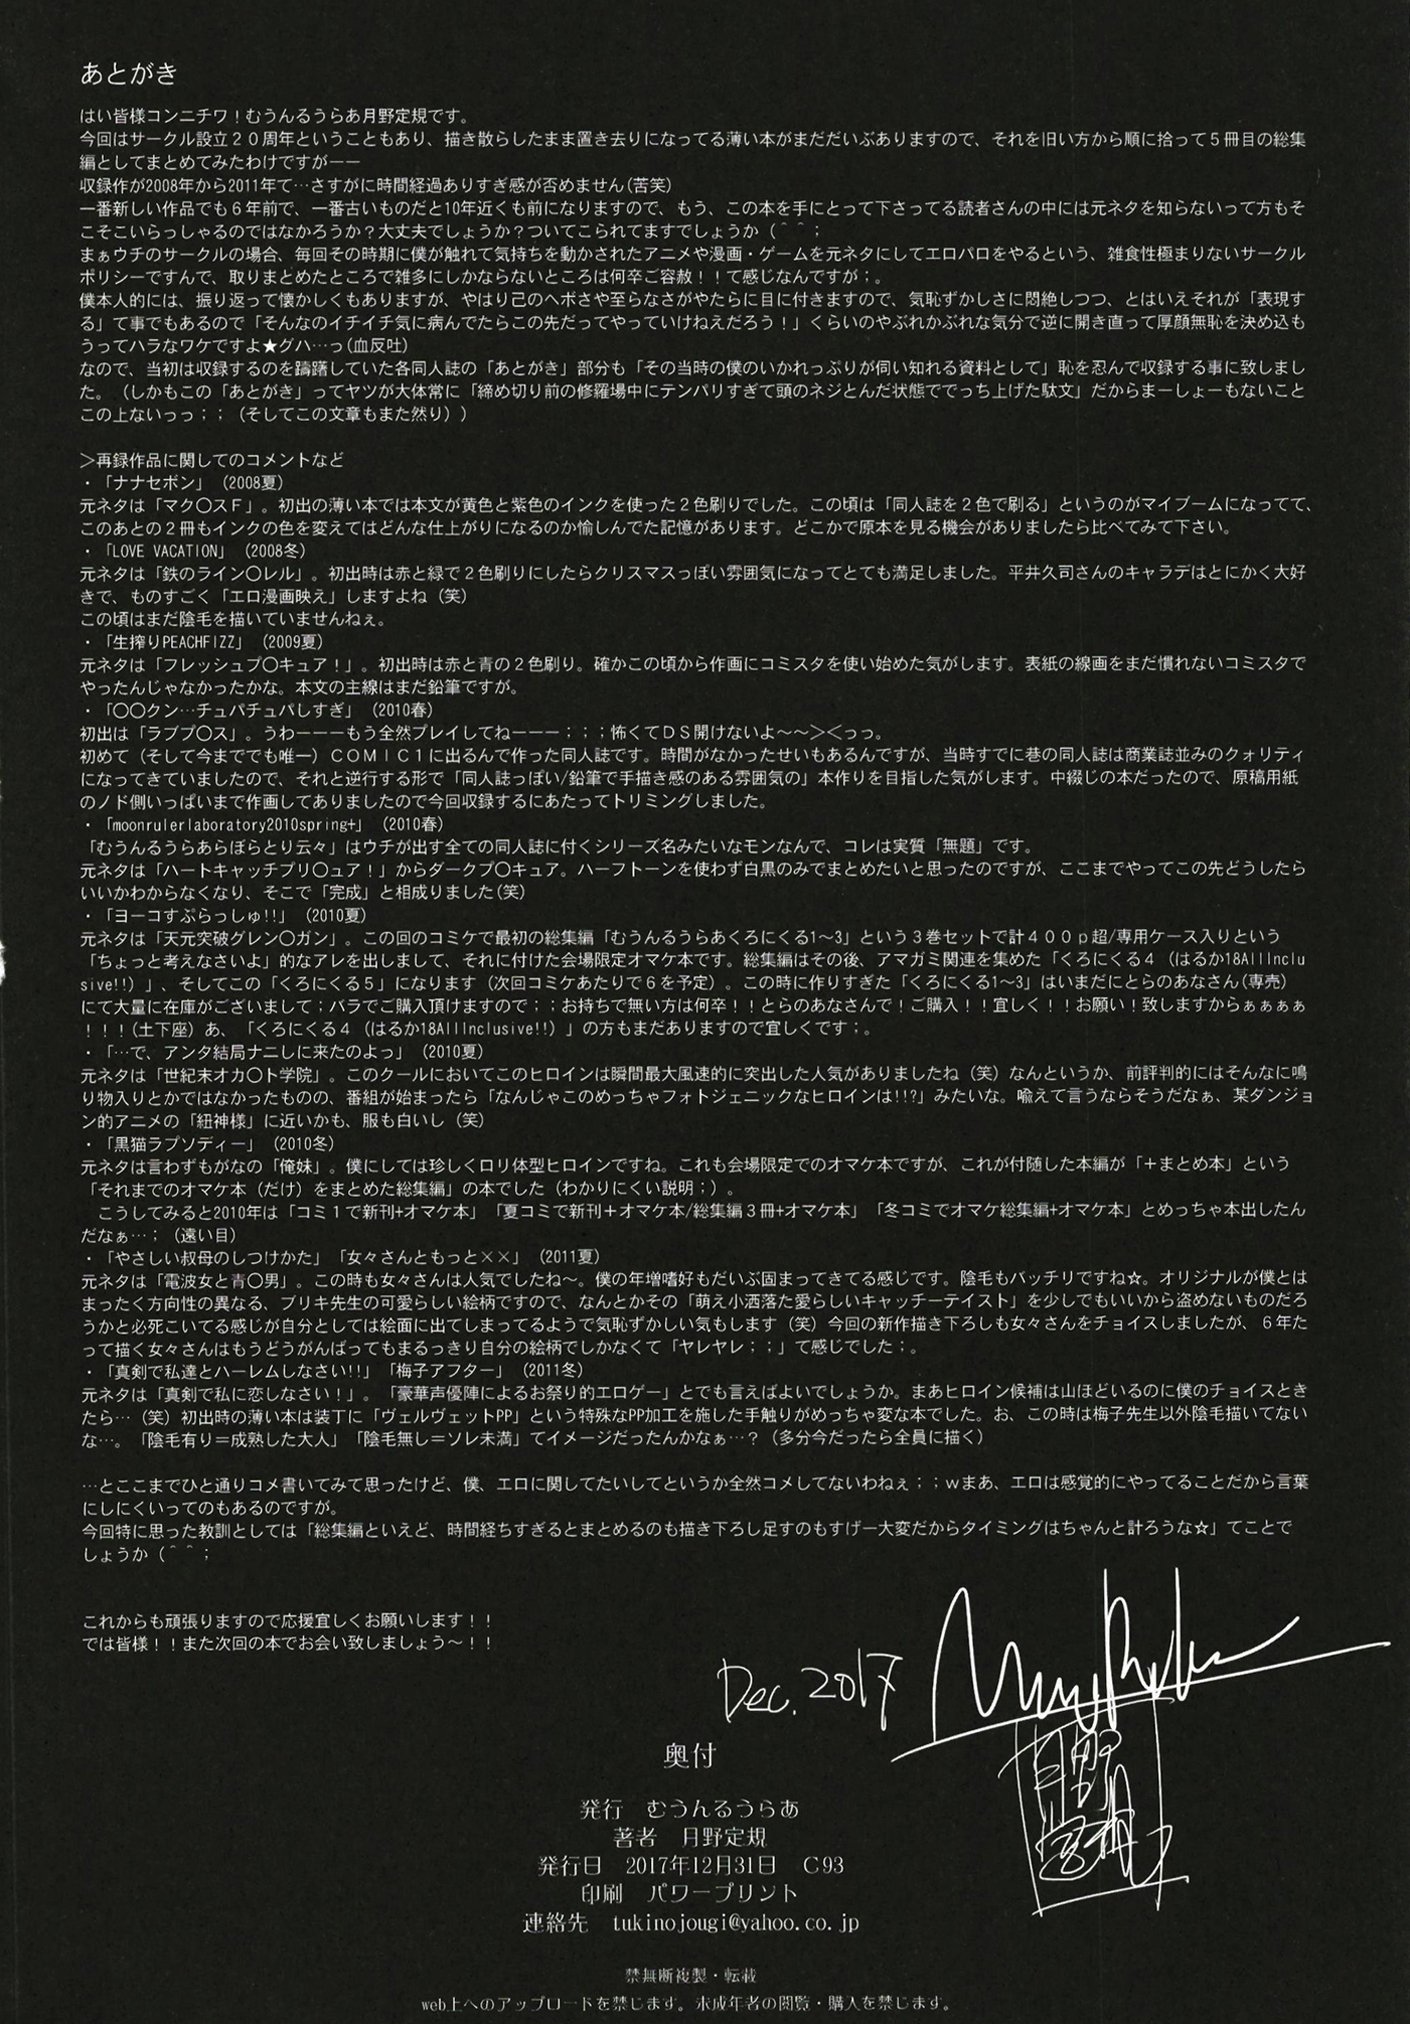 あとがき
はい皆様コンニチワ！むうんるうらあ月野定規です。
今回はサークル設立２０周年ということもあり、描き散らしたまま置き去りになってる薄い本がまだだいぶありますので、それを旧い方から順に拾って５冊目の総集
編としてまとめてみたわけですがーー
収録作が2008年から2011年て…さすがに時間経過ありすぎ感が否めません(苦笑)
一番新しい作品でも６年前で、一番古いものだと10年近くも前になりますので、もう、この本を手にとって下さってる読者さんの中には元ネタを知らないって方もそ
こそこいらっしゃるのではなかろうか？大丈夫でしょうか？ついてこられてますでしょうか（＾＾；
まぁウチのサークルの場合、毎回その時期に僕が触れて気持ちを動かされたアニメや漫画・ゲームを元ネタにしてエロパロをやるという、雑食性極まりないサークル
ポリシーですんで、取りまとめたところで雑多にしかならないところは何卒ご容赦！！て感じなんですが；。
僕本人的には、振り返って懐かしくもありますが、やはり己のヘボさや至らなさがやたらに目に付きますので、気恥ずかしさに悶絶しつつ、とはいえそれが「表現す
る」て事でもあるので「そんなのイチイチ気に病んでたらこの先だってやっていけねえだろう！」くらいのやぶれかぶれな気分で逆に開き直って厚顔無恥を決め込も
うってハラなワケですよ★グハ…っ(血反吐)
なので、当初は収録するのを躊躇していた各同人誌の「あとがき」部分も「その当時の僕のいかれっぷりが伺い知れる資料として」恥を忍んで収録する事に致しまし
た。（しかもこの「あとがき」ってヤツが大体常に「締め切り前の修羅場中にテンパリすぎて頭のネジとんだ状態ででっち上げた駄文」だからまーしょーもないこと
この上ないっっ；；（そしてこの文章もまた然り））
＞再録作品に関してのコメントなど
・「ナナセボン」（2008夏）
元ネタは「マク〇スＦ」。初出の薄い本では本文が黄色と紫色のインクを使った２色刷りでした。この頃は「同人誌を２色で刷る」というのがマイブームになってて、
このあとの２冊もインクの色を変えてはどんな仕上がりになるのか愉しんでた記憶があります。どこかで原本を見る機会がありましたら比べてみて下さい。
・「LOVE VACATION」（2008冬）
元ネタは「鉄のライン〇レル」。初出時は赤と緑で２色刷りにしたらクリスマスっぽい雰囲気になってとても満足しました。平井久司さんのキャラデはとにかく大好
きで、ものすごく「エロ漫画映え」しますよね（笑）
この頃はまだ陰毛を描いていませんねぇ。
・「生搾りPEACHFIZZ」（2009夏）
元ネタは「フレッシュプ〇キュア！」。初出時は赤と青の２色刷り。確かこの頃から作画にコミスタを使い始めた気がします。表紙の線画をまだ慣れないコミスタで
やったんじゃなかったかな。本文の主線はまだ鉛筆ですが。
・「〇〇クン…チュパチュパしすぎ」（2010春）
初出は「ラブプ〇ス」。うわーーーもう全然プレイしてねーーー；；；怖くてＤＳ開けないよ～～＞＜っっ。
初めて（そして今まででも唯一）ＣＯＭＩＣ１に出るんで作った同人誌です。時間がなかったせいもあるんですが、当時すでに巷の同人誌は商業誌並みのクォリティ
になってきていましたので、それと逆行する形で「同人誌っぽい/鉛筆で手描き感のある雰囲気の」本作りを目指した気がします。中綴じの本だったので、原稿用紙
のノド側いっぱいまで作画してありましたので今回収録するにあたってトリミングしました。
・「moonrulerlaboratory2010spring+」（2010春）
「むうんるうらあらぼらとり云々」はウチが出す全ての同人誌に付くシリーズ名みたいなモンなんで、コレは実質「無題」です。
元ネタは「ハートキャッチプリ〇ュア！」からダークプ〇キュア。ハーフトーンを使わず白黒のみでまとめたいと思ったのですが、ここまでやってこの先どうしたら
いいかわからなくなり、そこで「完成」と相成りました(笑)
・「ヨーコすぷらっしゅ!!」（2010夏）
元ネタは「天元突破グレン〇ガン」。この回のコミケで最初の総集編「むうんるうらあくろにくる1～3」という３巻セットで計４００ｐ超/専用ケース入りという
「ちょっと考えなさいよ」的なアレを出しまして、それに付けた会場限定オマケ本です。総集編はその後、アマガミ関連を集めた「くろにくる４（はるか18AllInclu
sive!!）」、そしてこの「くろにくる５」になります（次回コミケあたりで６を予定）。この時に作りすぎた「くろにくる1～3」はいまだにとらのあなさん(専売)
にて大量に在庫がございまして；バラでご購入頂けますので；；お持ちで無い方は何卒！！とらのあなさんで！ご購入！！宜しく！！お願い！致しますからぁぁぁぁ
！！！(土下座）あ、「くろにくる４（はるか18AllInclusive!!）」の方もまだありますので宜しくです；。
・「…で、アンタ結局ナニしに来たのよっ」（2010夏）
元ネタは「世紀末オカ〇ト学院」。このクールにおいてこのヒロインは瞬間最大風速的に突出した人気がありましたね（笑）なんというか、前評判的にはそんなに鳴
り物入りとかではなかったものの、番組が始まったら「なんじゃこのめっちゃフォトジェニックなヒロインは!!?」みたいな。喩えて言うならそうだなぁ、某ダンジョ
ン的アニメの「紐神様」に近いかも、服も白いし（笑）
・「黒猫ラプソディー」（2010冬）
元ネタは言わずもがなの「俺妹」。僕にしては珍しくロリ体型ヒロインですね。これも会場限定でのオマケ本ですが、これが付随した本編が「＋まとめ本」という
「それまでのオマケ本（だけ）をまとめた総集編」の本でした（わかりにくい説明；）。
こうしてみると2010年は「コミ１で新刊+オマケ本」「夏コミで新刊＋オマケ本/総集編３冊+オマケ本」「冬コミでオマケ総集編+オマケ本」とめっちゃ本出したん
だなぁ…；（遠い目）
・「やさしい叔母のしつけかた」「女々さんともっと××」（2011夏）
元ネタは「電波女と青〇男」。この時も女々さんは人気でしたね～。僕の年増嗜好もだいぶ固まってきてる感じです。陰毛もバッチリですね☆。オリジナルが僕とは
まったく方向性の異なる、ブリキ先生の可愛らしい絵柄ですので、なんとかその「萌え小洒落た愛らしいキャッチーテイスト」を少しでもいいから盗めないものだろ
うかと必死こいてる感じが自分としては絵面に出てしまってるようで気恥ずかしい気もします（笑）今回の新作描き下ろしも女々さんをチョイスしましたが、６年た
って描く女々さんはもうどうがんばってもまるっきり自分の絵柄でしかなくて「ヤレヤレ；；」て感じでした；。
・「真剣で私達とハーレムしなさい!!」「梅子アフター」（2011冬）
元ネタは「真剣で私に恋しなさい！」。「豪華声優陣によるお祭り的エロゲー」とでも言えばよいでしょうか。まあヒロイン候補は山ほどいるのに僕のチョイスとき
たら…（笑）初出時の薄い本は装丁に「ヴェルヴェットPP」という特殊なPP加工を施した手触りがめっちゃ変な本でした。お、この時は梅子先生以外陰毛描いてない
な…。「陰毛有り＝成熟した大人」「陰毛無し＝ソレ未満」てイメージだったんかなぁ…？（多分今だったら全員に描く）
…とここまでひと通りコメ書いてみて思ったけど、僕、エロに関してたいしてというか全然コメしてないわねぇ；；ｗまあ、エロは感覚的にやってることだから言葉
にしにくいってのもあるのですが。
今回特に思った教訓としては「総集編といえど、時間経ちすぎるとまとめるのも描き下ろし足すのもすげー大変だからタイミングはちゃんと計ろうな☆」てことで
しょうか（＾＾；
これからも頑張りますので応援宜しくお願いします！！
では皆様！！また次回の本でお会い致しましょう～！！
Dec. 2017
月野
定規
奥付
発行　むうんるうらあ
著者　月野定規
発行日　2017年12月31日　Ｃ93
印刷　パワープリント
連絡先　tukinojougi@yahoo.co.jp
禁無断複製・転載
web上へのアップロードを禁じます。未成年者の閲覧・購入を禁じます。